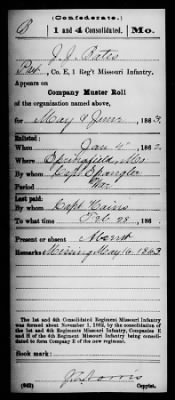 (Confederate.)
B 1 and 4 Consolidated. Mo.
J. J. Bates
Pvt, Co. E, 1 Reg't Missouri Infantry.
Appears on
Company Muster Roll
of the organization named above,
for May & June, 1863.
Enlisted:
When Jan 4, 1862
Where Springfield, Mo
By whom Capt Spangler
Period War
Last paid:
By whom Capt Hains
To what time Feb 28, 186
Present or absent Absent
Remarks: Missing May 16, 1863
The 1st and 4th Consolidated Regiment Missouri Infantry
was formed about November 1, 1862, by the consolidation of
the 1st and 4th Regiments Missouri Infantry, Companies E
and H of the 4th Regiment Missouri Infantry being consolidated
to form Company E of the new regiment.
Book mark:
(642)
Copyist.